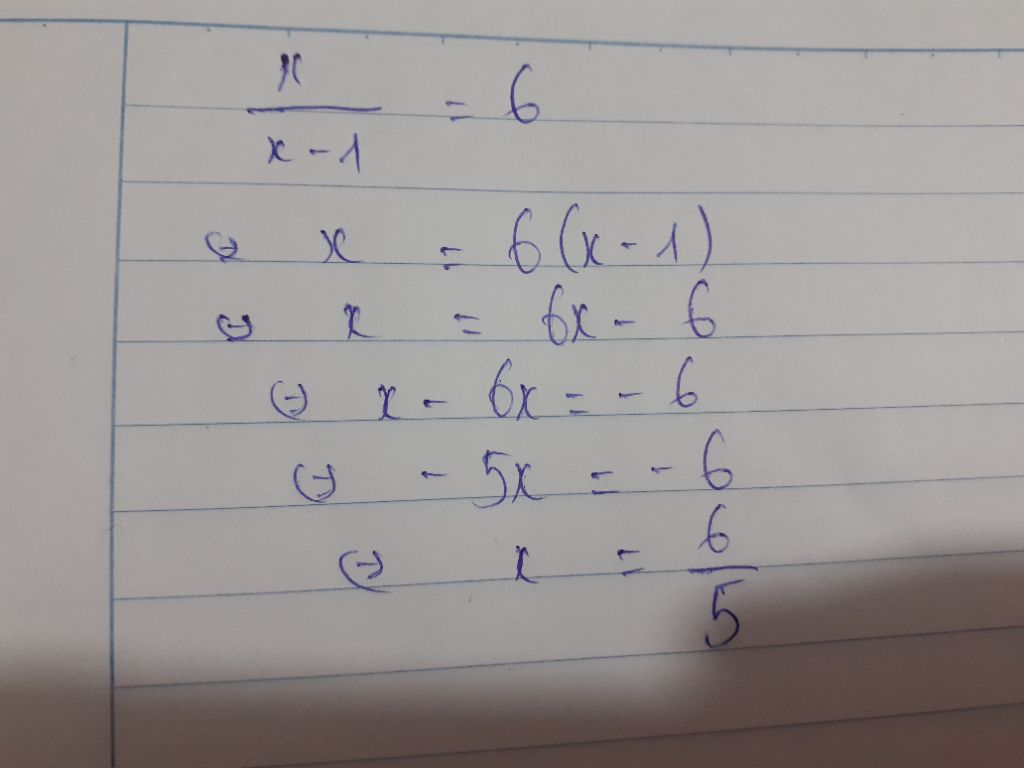 x/(x-1) = 6
⇔ x = 6(x-1)
⇔ x = 6x - 6
⇔ x - 6x = -6
⇔ -5x = -6
⇔ x = 6/5